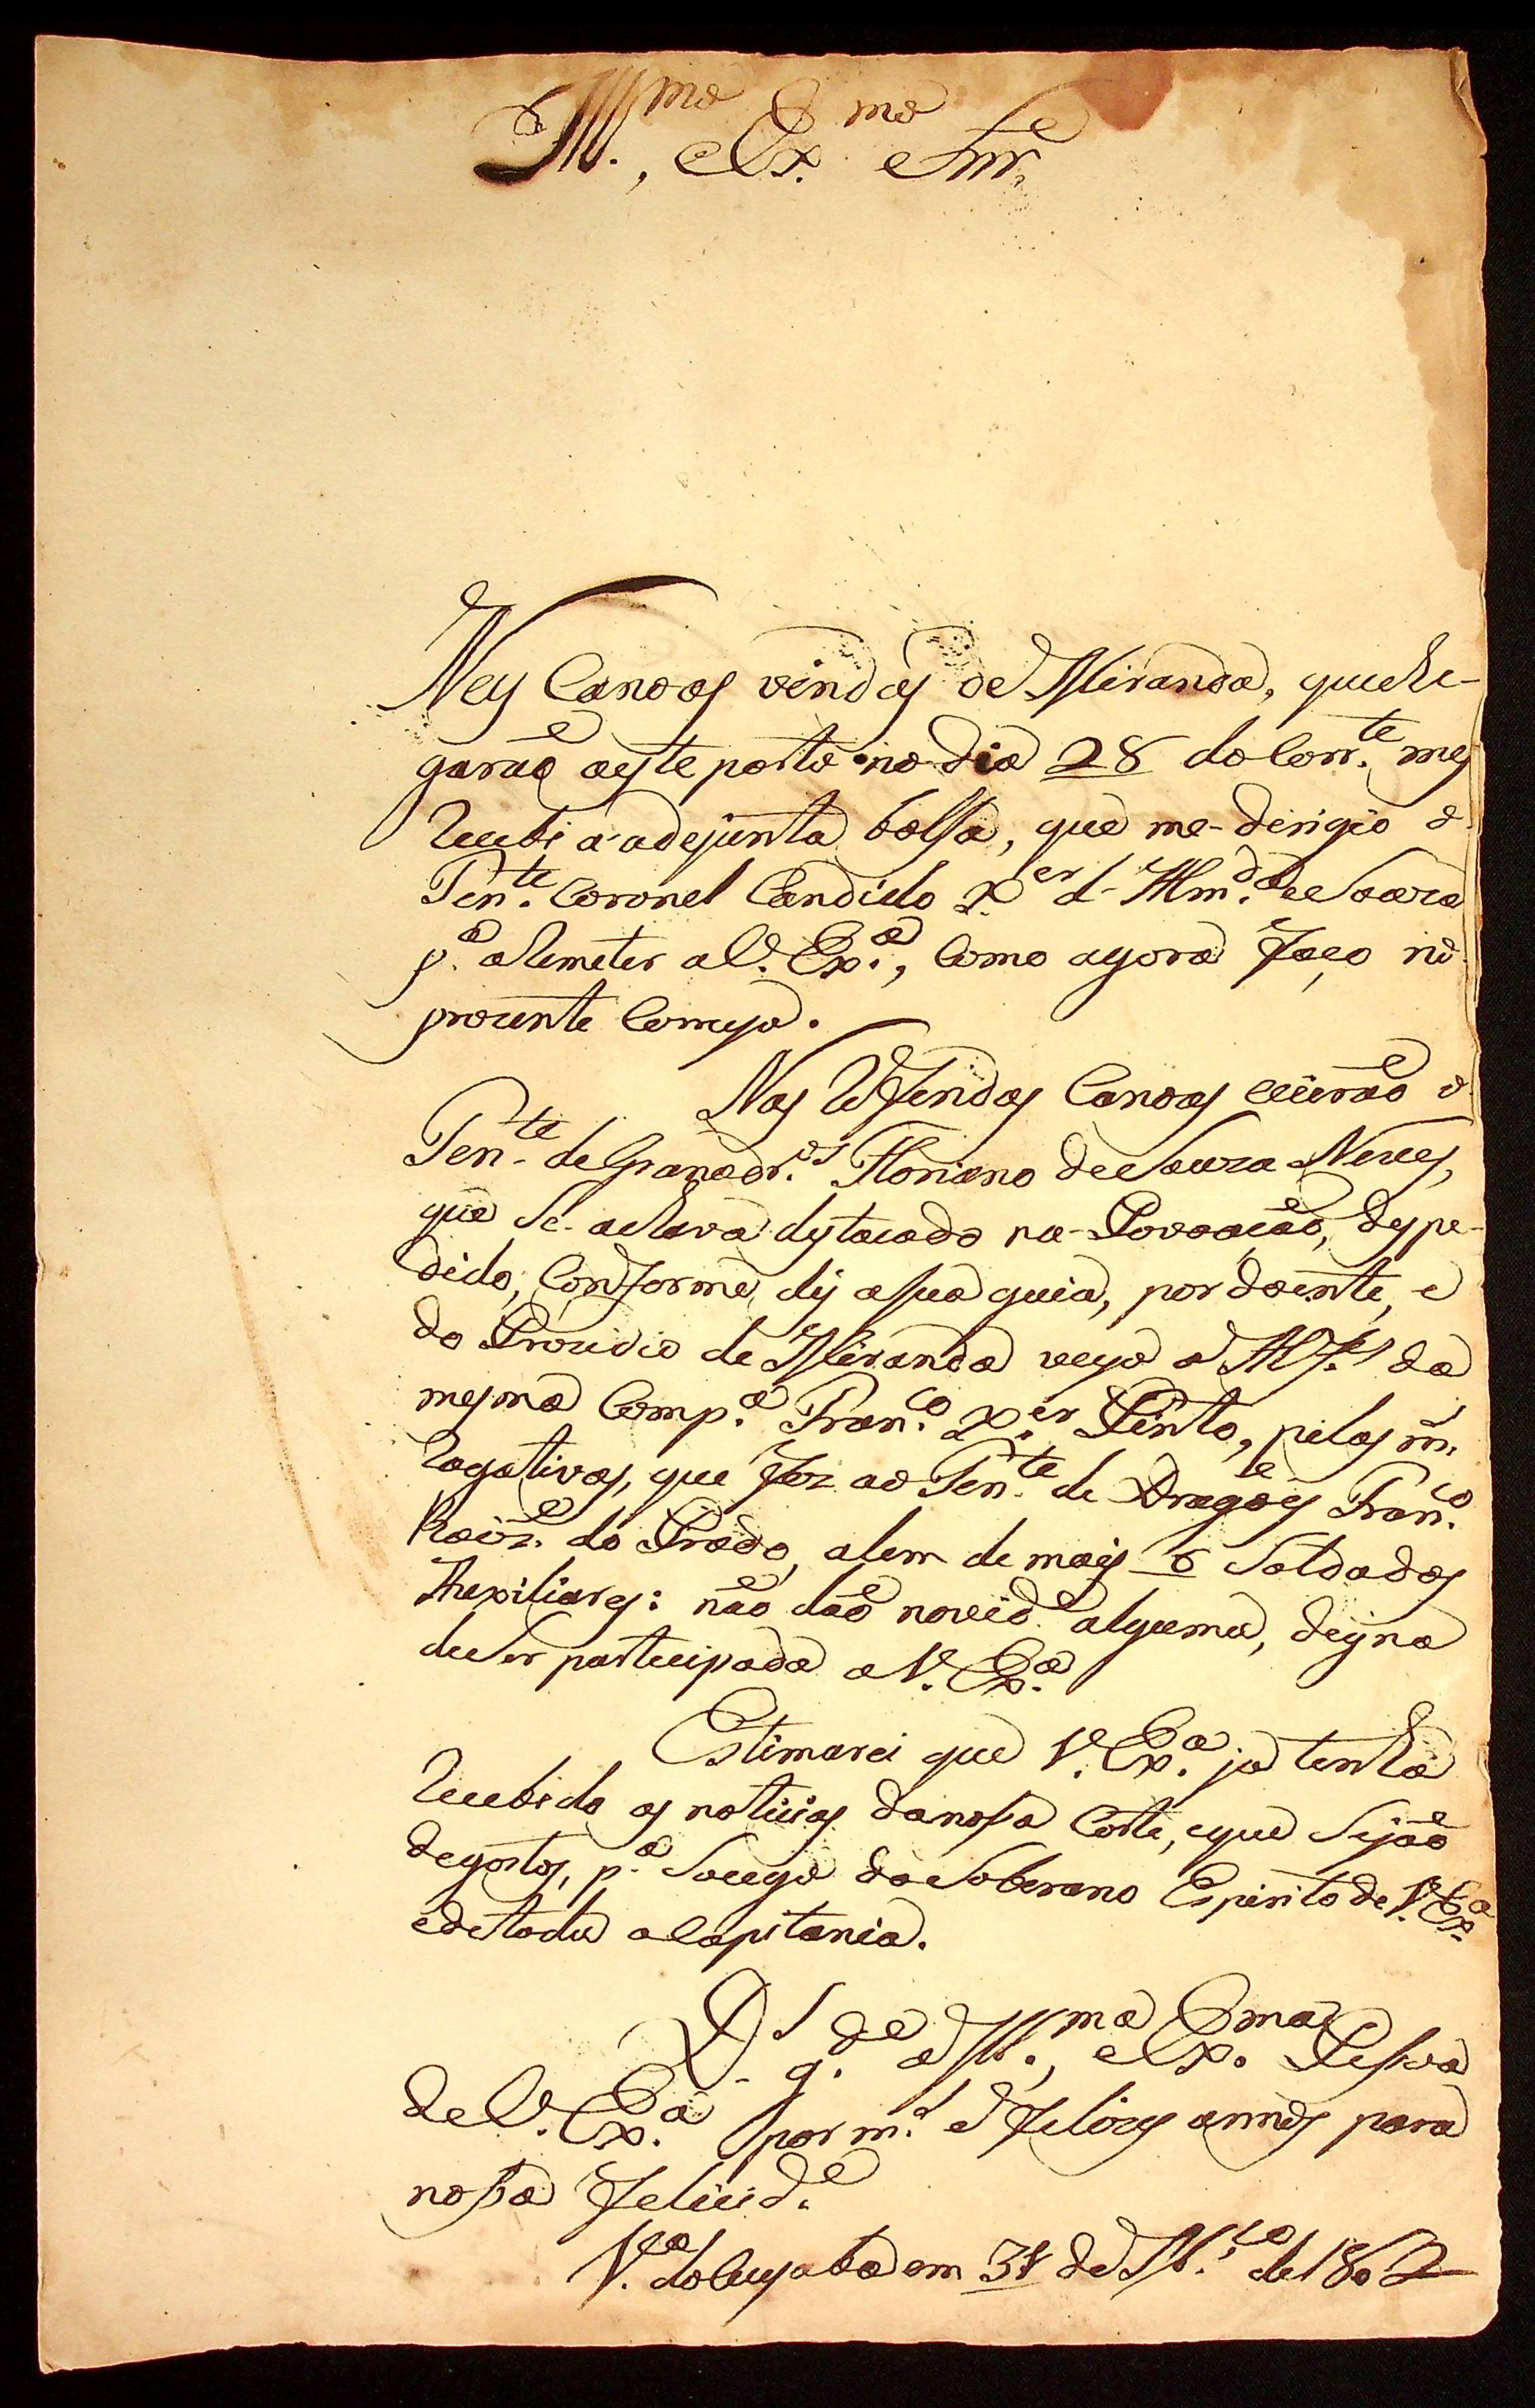 Ill.mo, e Ex.mo Snr̃.
Nas Canoas vindas de Miranda, que che-
garaõ aeste porto no dia 28 do Corr.te mes
Recebi a adejunta bolsa, que me-derigio o
Ten.te Coronel Candido X.er d'Alm.da e Souza
p.a a Remeter a V. Ex.a, Como agora Faço no
prezente Correyo.
Nas Refferidas Canoas vieraõ o
Ten.te de Granadr.os Floriano de Souza Neves,
que Se-achava destacado na Povoacaõ, despe-
dido, Conforme diz a sua guia, por doente, e
do Prezidio de Miranda veyo o Alf.s da
mesma Comp.a Fran.co X.er Pinto, pelas m.s
Rogativas, que Fez ao Ten.te de Dragoẽs Fran.co
Roiz̃. do Prado, alem de mais 6 Soldados
Auxiliares: naõ daõ novid.e alguma, digna
de Ser participada a V. Ex.a
Estimarei que V. Ex.a ja tenha
Recebido as noticias da nossa Corte, e que Sejaõ
de gostos, p.a Socego do Soberano Espirito de V. Ex.a
e de toda a Capitania.
D.s g.de a Ill.ma, e Ex.ma Pessoa
de V. Ex.a por m.s e Felizes annos para
nossa Felicid.e
V.a do Cuyabá em 31 de M.ço de 1802